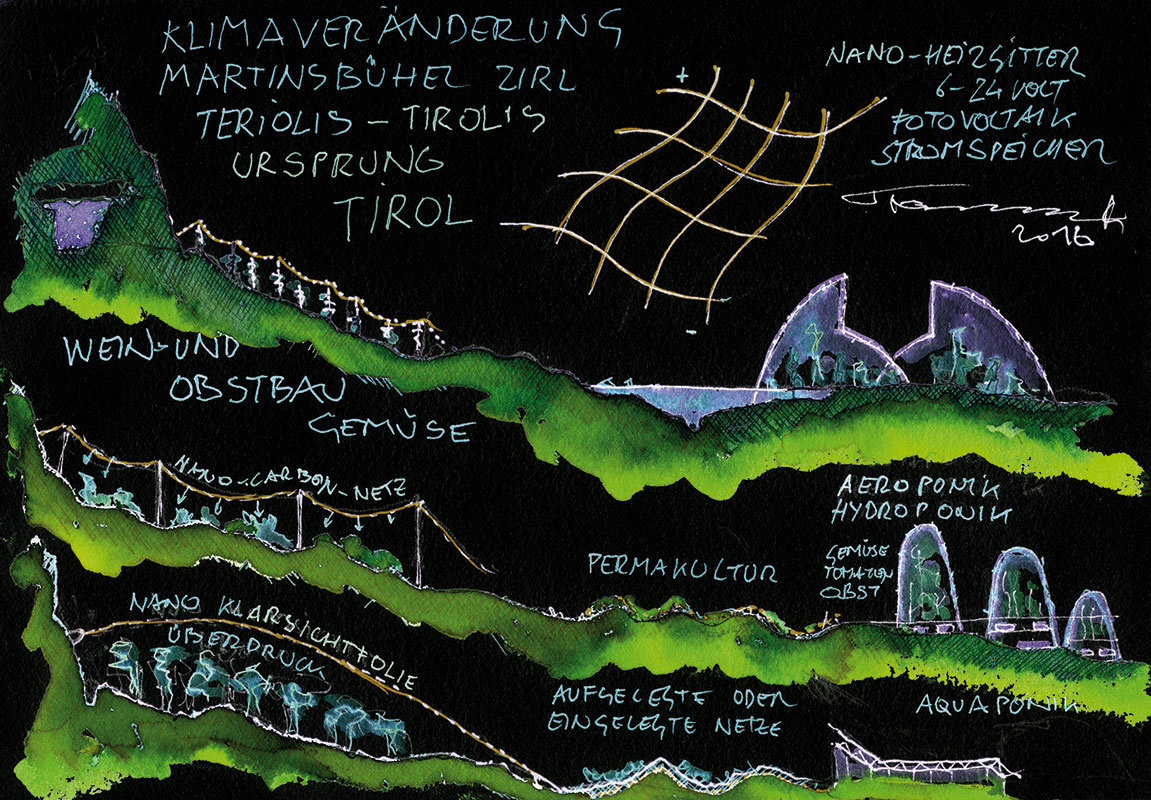 KLIMAVERÄNDERUNG
MARTINSBÜHEL ZIRL
TERIOLIS – TIROLIS
URSPRUNG
TIROL
+
NANO-HEIZGITTER
6–24 VOLT
FOTOVOLTAIK
STROMSPEICHER
2016
-
WEIN- UND
OBSTBAU
GEMÜSE
NANO-CARBON-NETZ
AEROPONIK
HYDROPONIK
GEMÜSE
TOMATEN
OBST
PERMAKULTUR
NANO KLARSICHTFOLIE
ÜBERDRUCK
AUFGELEGTE ODER
EINGELEGTE NETZE
AQUAPONIK